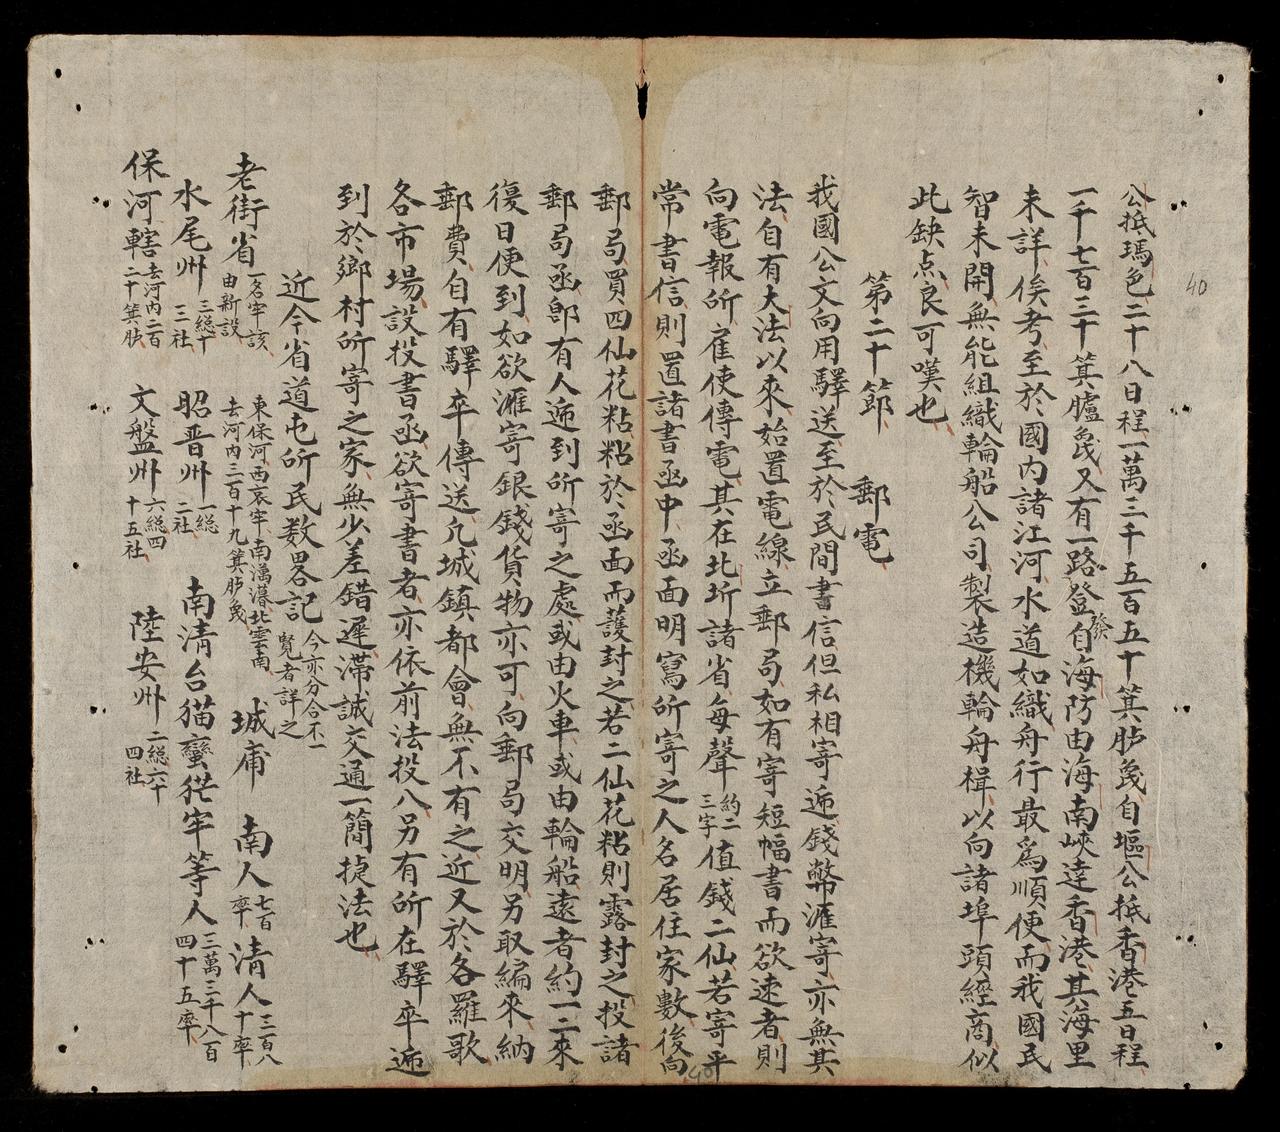 40
公抵瑪色二十八日程一萬三千五百五十箕𦙫㡬自塸公抵香港五日程
一千七百三十箕臚㡬又有一路登發自海防由海南峽達香港其海里
未詳俟考至於國内諸江河水道如織舟行最爲順便而我國民
智未開無能組織輪船公司製造機輪舟楫以向諸埠頭經商似
此缺点良可嘆也
第二十節　郵電
我國公文向用驛送至於民間書信但私相寄逓錢幣滙寄亦無其
法自有大法以來始置電線立郵局如有寄短幅書而欲速者則
向電報所雇使傳電其在北圻諸省每聲約二三字值錢二仙若寄平
常書信則置諸書函中函面明寫所寄之人名居住家數後向
郵局買四仙花粘粘於函面而護封之若二仙花粘則露封之投諸
郵局函卽有人逓到所寄之處或由火車或由輪船遠者約一二來
復日便到如欲滙寄銀錢貨物亦可向郵局交明另取編來納
郵費自有驛卒傳送凢城鎮都會無不有之近又於各羅歌
各市場設投書函欲寄書者亦依前法投入另有所在驛卒逓
到於鄉村所寄之家無少差錯遲滯誠交通一簡捷法也
近今省道屯所民数畧記今亦分合不一覧者詳之
老街省一名牢該由新設　東保河西哀牢南𣼪濽北雲南去河内三百十九箕𦙫㡬　城庯　南人七百率清人十率三百八
水尾州三総十三社　昭晋州一総二社　南清台猫蠻狵牢等人三萬三千八百四十五率
保河轄去河内二百二十箕𦙫　文盤州六総四十五社　陸安州二総六十四社
40